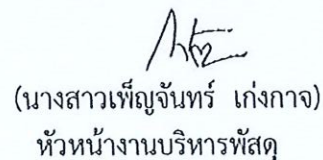 (นางสาวเพ็ญจันทร์ เก่งกาจ)
หัวหน้างานบริหารพัสดุ